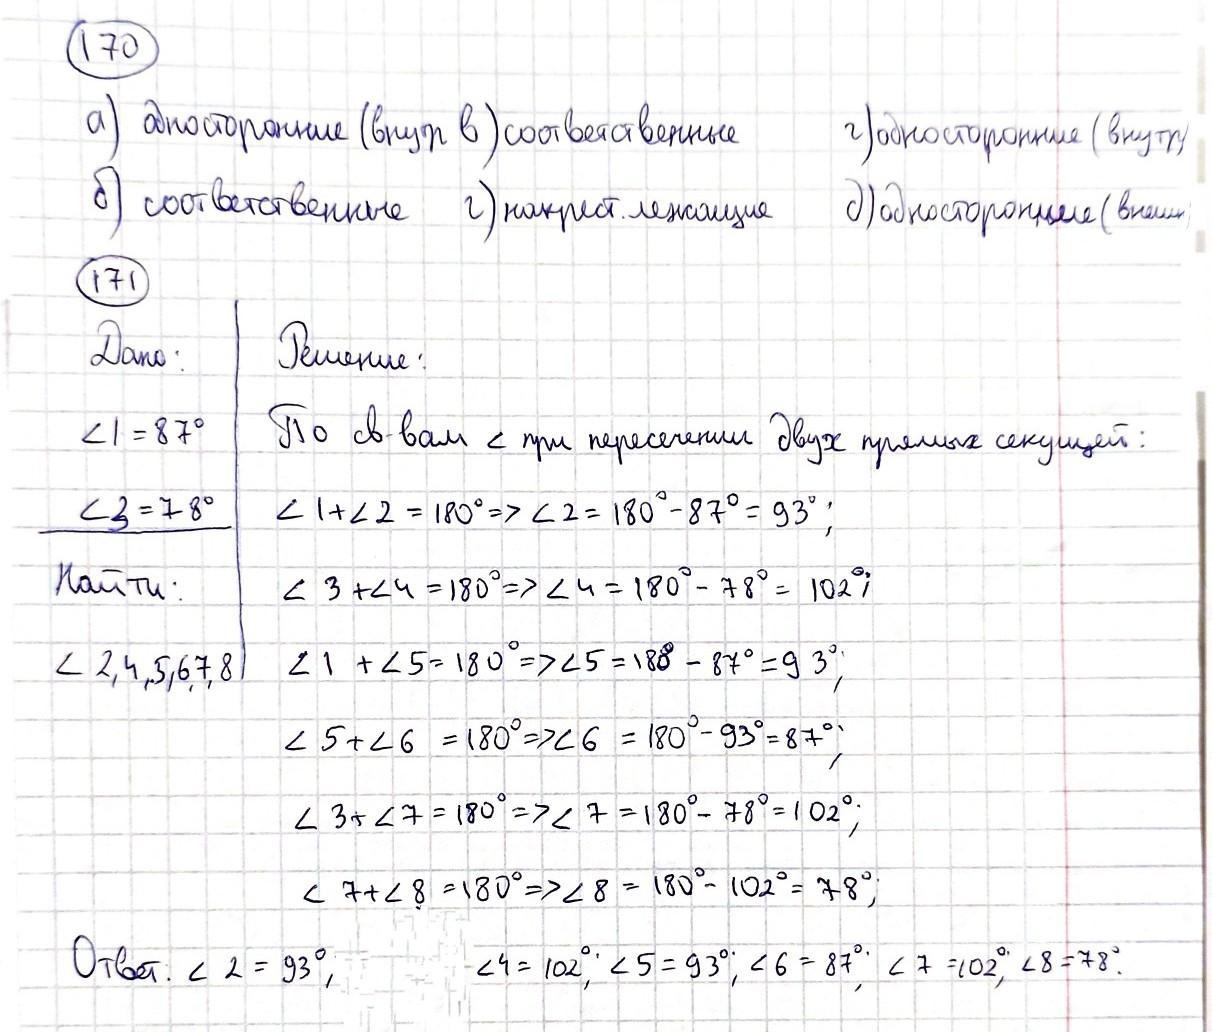 170
а) односторонние (внутр в) соответственные г) односторонние (внутр)
б) соответственные г) накрест. лежащие д) односторонние (внеш.
171
Дано: Решение:
∠1 = 87° По св-вам ∠ при пересечении двух прямых секущей:
∠3 = 78° ∠1 + ∠2 = 180° => ∠2 = 180° - 87° = 93°;
Найти: ∠3 + ∠4 = 180° => ∠4 = 180° - 78° = 102°;
∠2,4,5,6,7,8 ∠1 + ∠5 = 180° => ∠5 = 180 - 87° = 93°;
∠5 + ∠6 = 180° => ∠6 = 180° - 93° = 87°;
∠3 + ∠7 = 180° => ∠7 = 180° - 78° = 102°;
∠7 + ∠8 = 180° => ∠8 = 180° - 102° = 78°;
Ответ: ∠2 = 93°; ∠4 = 102°; ∠5 = 93°; ∠6 = 87°; ∠7 = 102°; ∠8 = 78°.